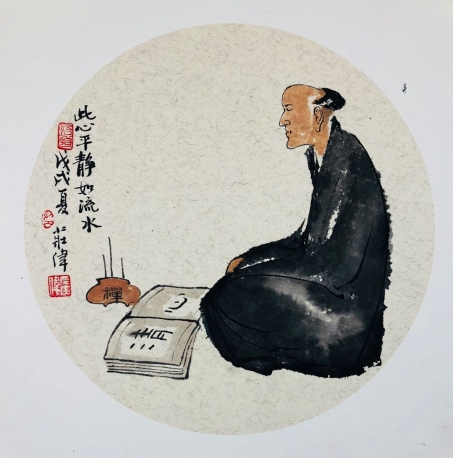 此心平靜如流水
戊戌夏 壯偉
禪